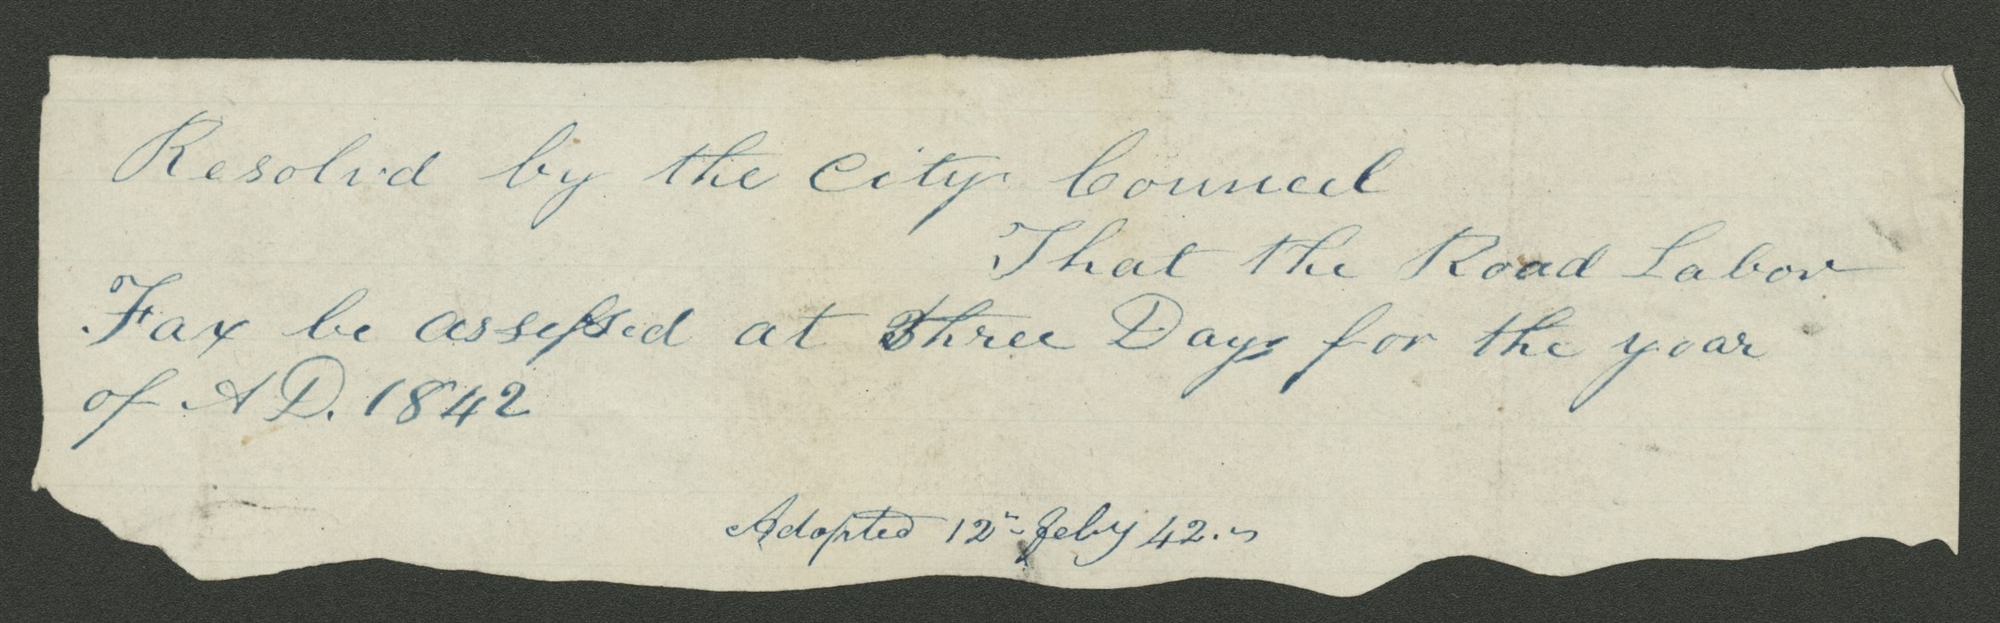 Resolvd by the City Council
That the Road Labor
Tax be assessed at three Days for the year
of A D. 1842
Adopted 12th Feby 42.